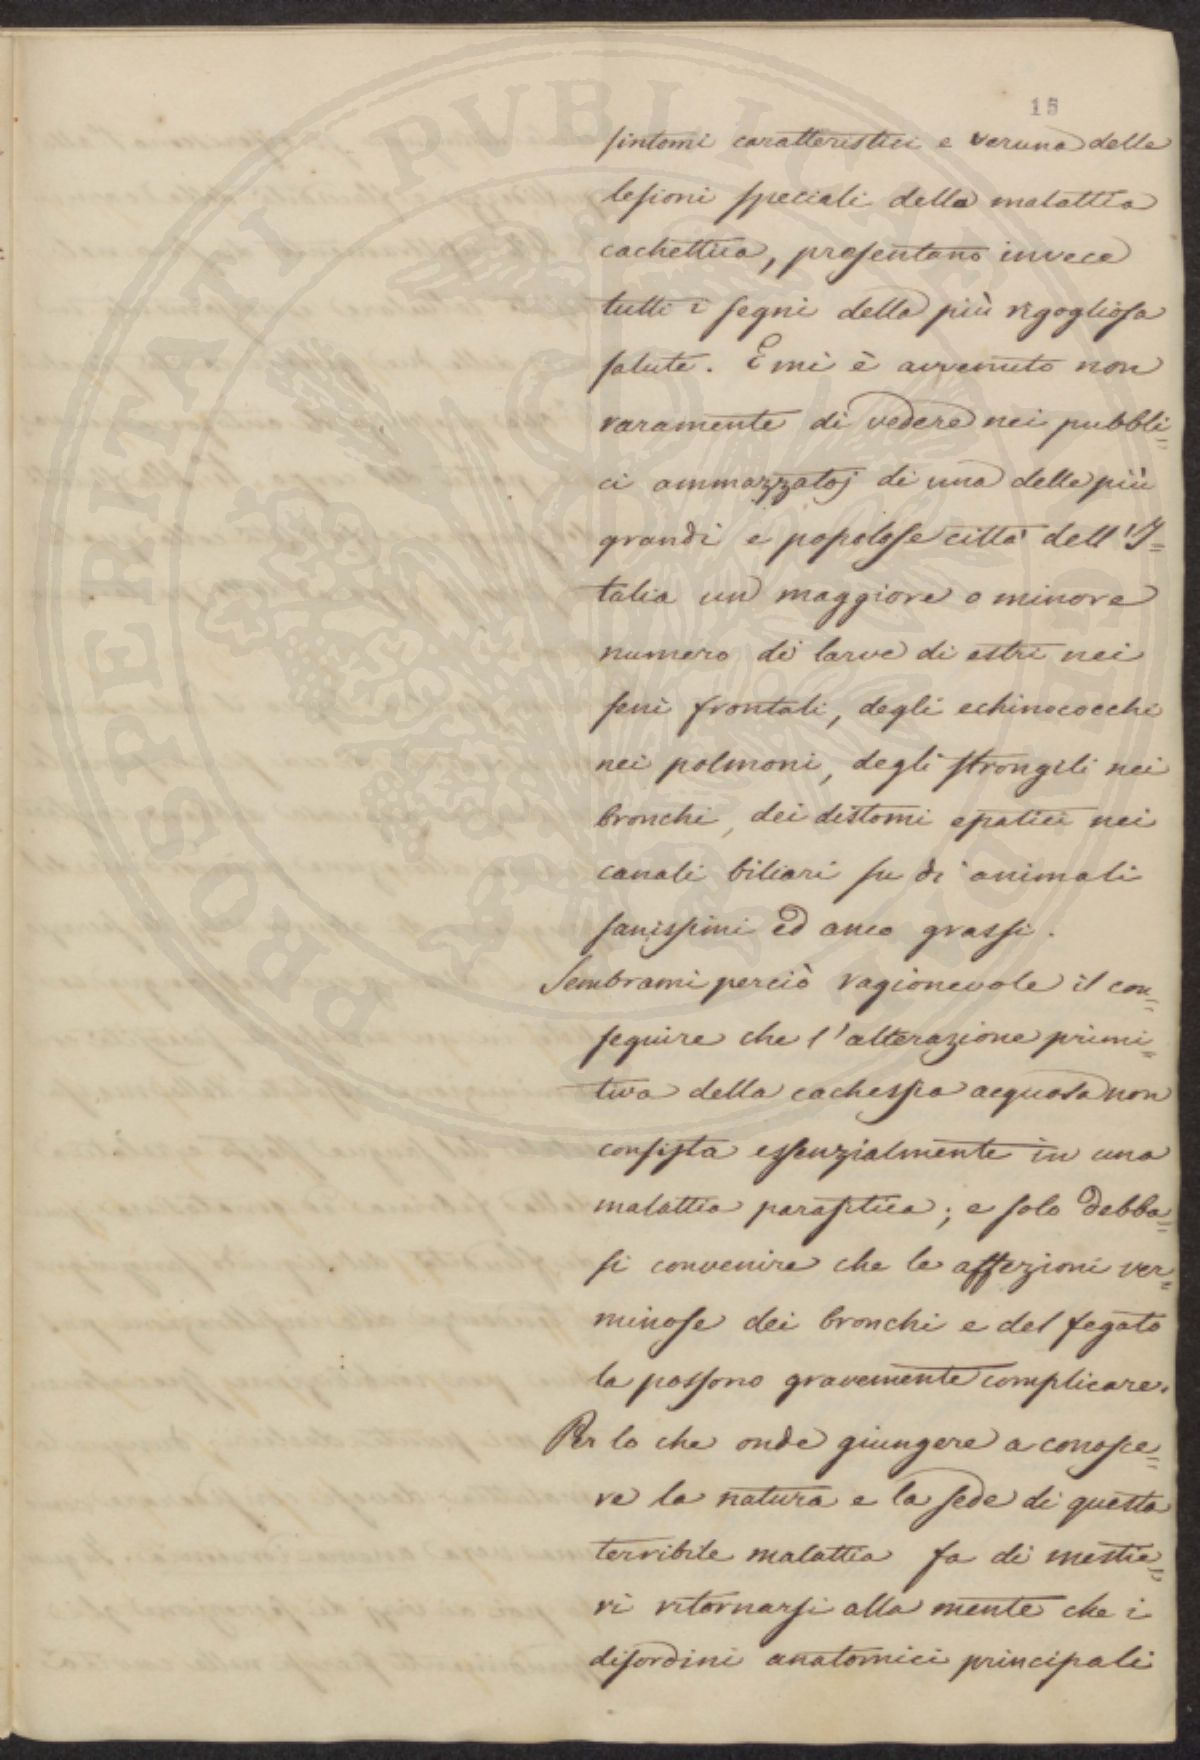 15
sintomi caratteristici e veruna delle
lesioni speciali della malattia
cachettica, presentano invece
tutti i segni della più rigogliosa
salute. E mi è avvenuto non
raramente di vedere nei pubbli=
ci ammazzatoj di una delle più
grandi e popolose città dell'I=
talia un maggiore o minore
numero di larve di estri nei
seni frontali, degli echinococchi
nei polmoni, degli strongili nei
bronchi, dei distomi epatici nei
canali biliari su di animali
sanissimi ed anco grassi.
Sembrami perciò ragionevole il con=
seguire che l'alterazione primi=
tiva della cachessia acquosa non
consista essenzialmente in una
malattia parasitica; e solo debba=
si convenire che le affezioni ver=
minose dei bronchi e del fegato
la possono gravemente complicare.
Per lo che onde giungere a conosce=
re la natura e la sede di questa
terribile malattia fa di mestie=
ri ritornarsi alla mente che i
disordini anatomici principali
PROSPERITATI PVBLICAE